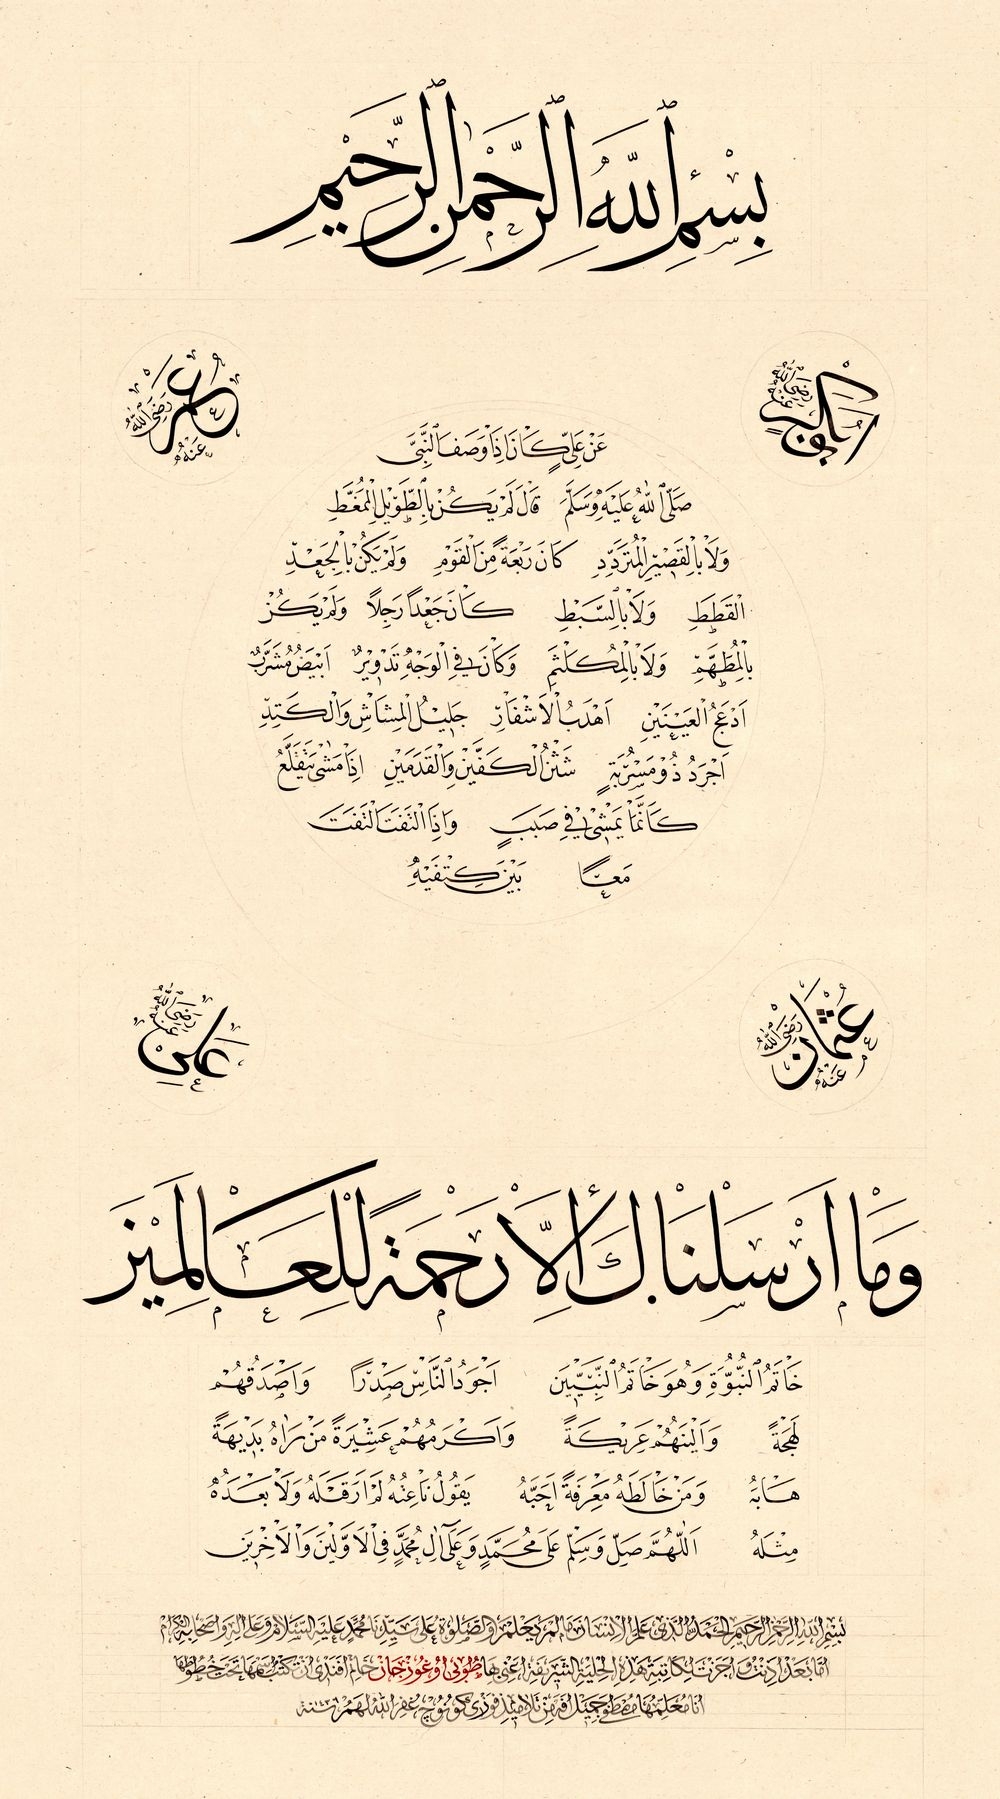 بسم الله الرحمن الرحيم
ابوبكر رضي الله عنه
عمر رضي الله عنه
عن علي كان اذا وصف النبي
صلى الله عليه وسلم قال لم يكن بالطويل الممغط
ولا بالقصير المتردد كان ربعة من القوم ولم يكن بالجعد
القطط ولا بالسبط كان جعدا رجلا ولم يكن
بالمطهم ولا بالمكلثم وكان في الوجه تدوير ابيض مشرب
ادعج العينين اهدب الاشفار جليل المشاش والكتد
اجرد ذو مسربة شثن الكفين والقدمين اذا مشى يتقلع
كانما يمشي في صبب واذا التفت التفت
معا بين كتفيه
عثمان رضي الله عنه
علي رضي الله عنه
وما ارسلناك الا رحمة للعالمين
خاتم النبوة وهو خاتم النبيين اجود الناس صدرا واصدقهم
لهجة والينهم عريكة واكرمهم عشيرة من راه بديهة
هابه ومن خالطه معرفة احبه يقول ناعته لم ار قبله ولا بعده
مثله اللهم صل وسلم على محمد وعلى ال محمد في الاولين والاخرين
بسم الله الرحمن الرحيم الحمد لله الذي علم الانسان ما لم يعلم والصلوة على سيدنا محمد عليه السلام وعلى اله واصحابه الكرام
اما بعد اذنت واجزت لكاتبة هذه الحلية الشريفة اعني بها طوبى اوغوزخان خانم افندي ان تكتب اسمها تحت خطوطها
انا معلمها من تلاميذ فوزي غفر الله لهم سنة